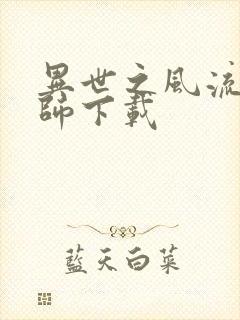 異世之風流
師下載
藍天白菜